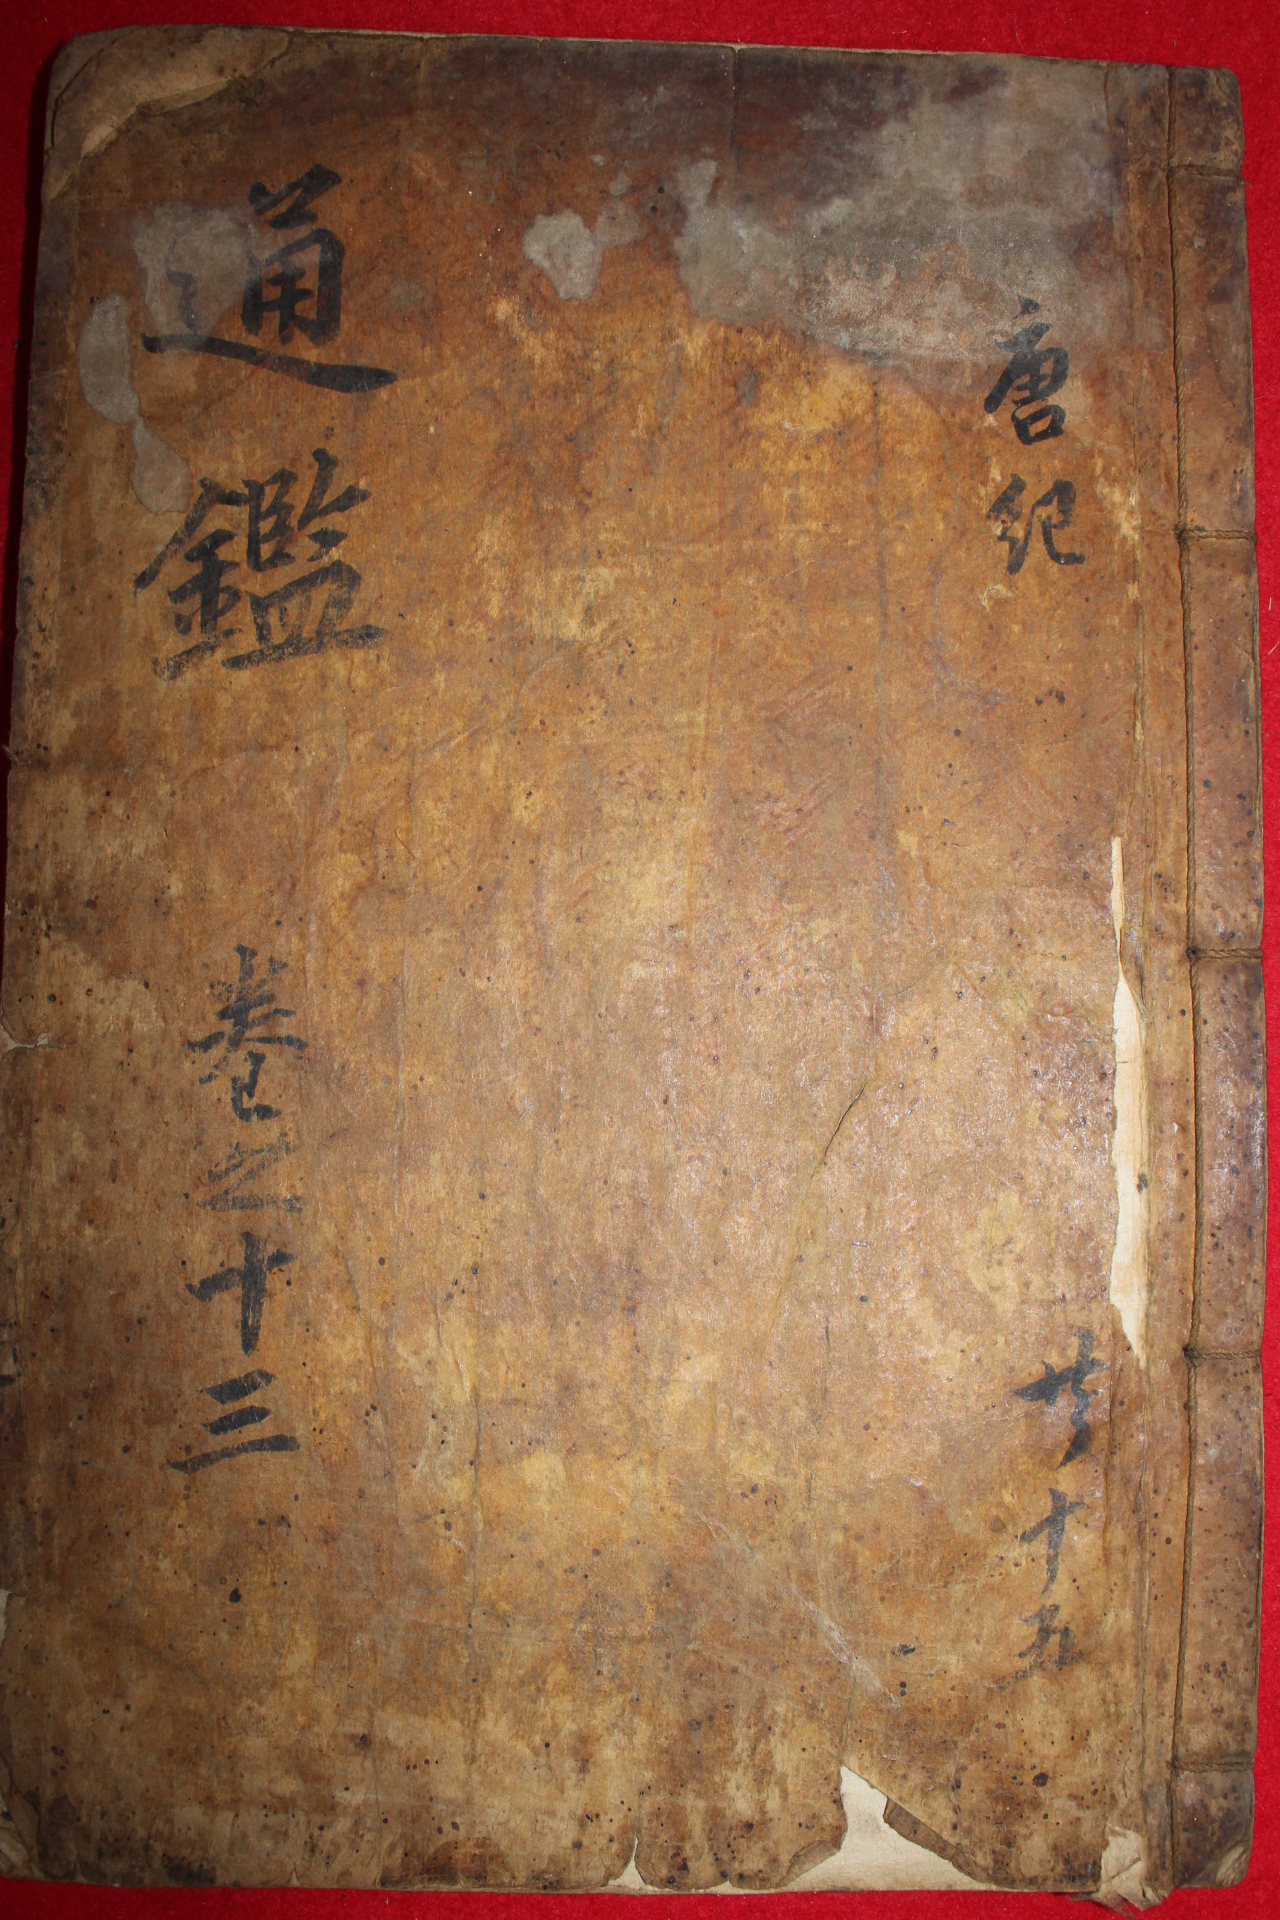 唐紀
共十五
通鑑
卷之十三